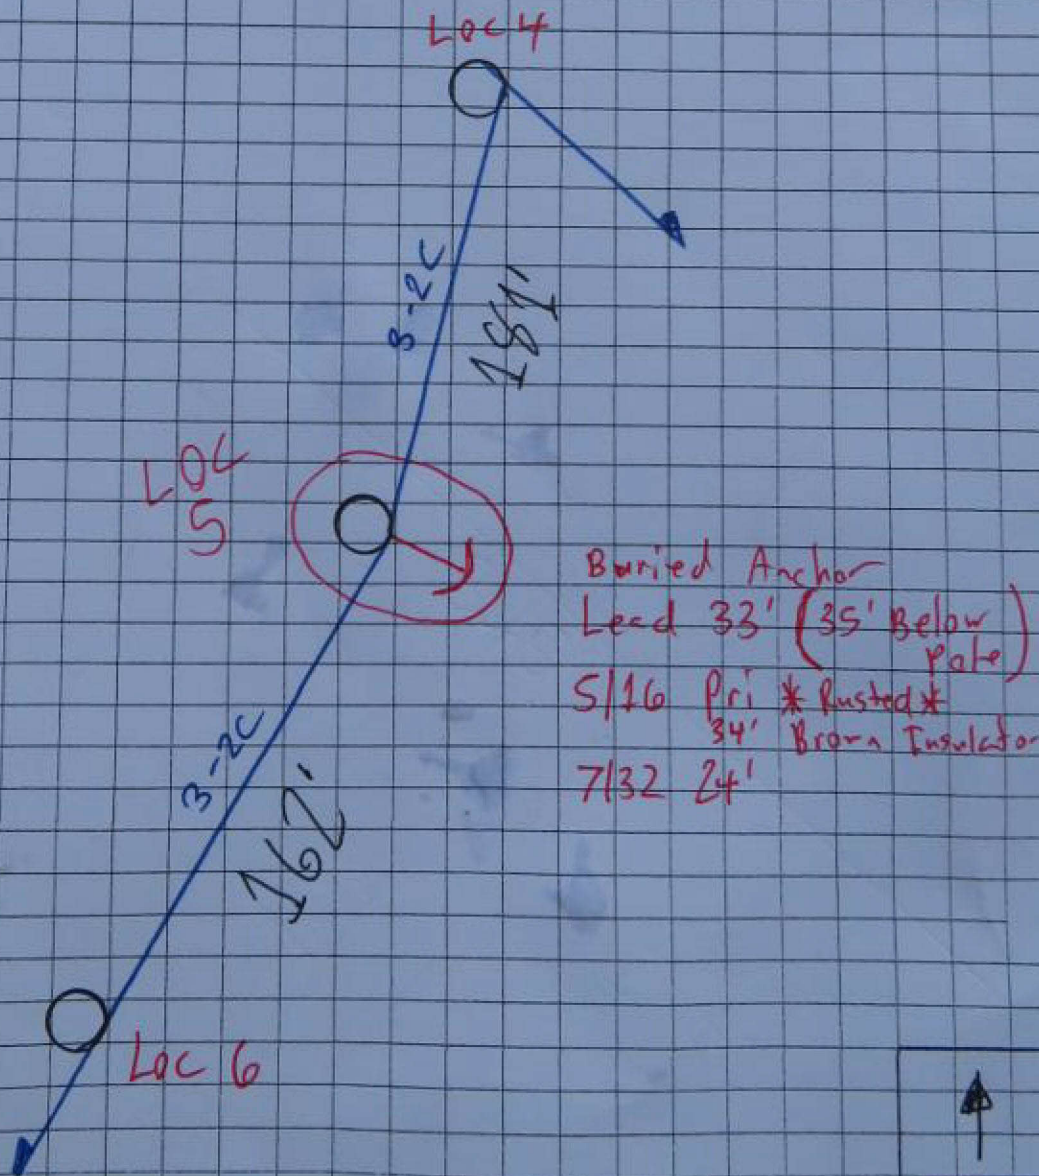 Loc 4
3-2C
181'
LOC
5
Buried Anchor
Lead 33' (35' Below
Pole)
5/16 Pri * Rusted *
34' Brown Insulator
7/32 24'
3-2C
162'
Loc 6